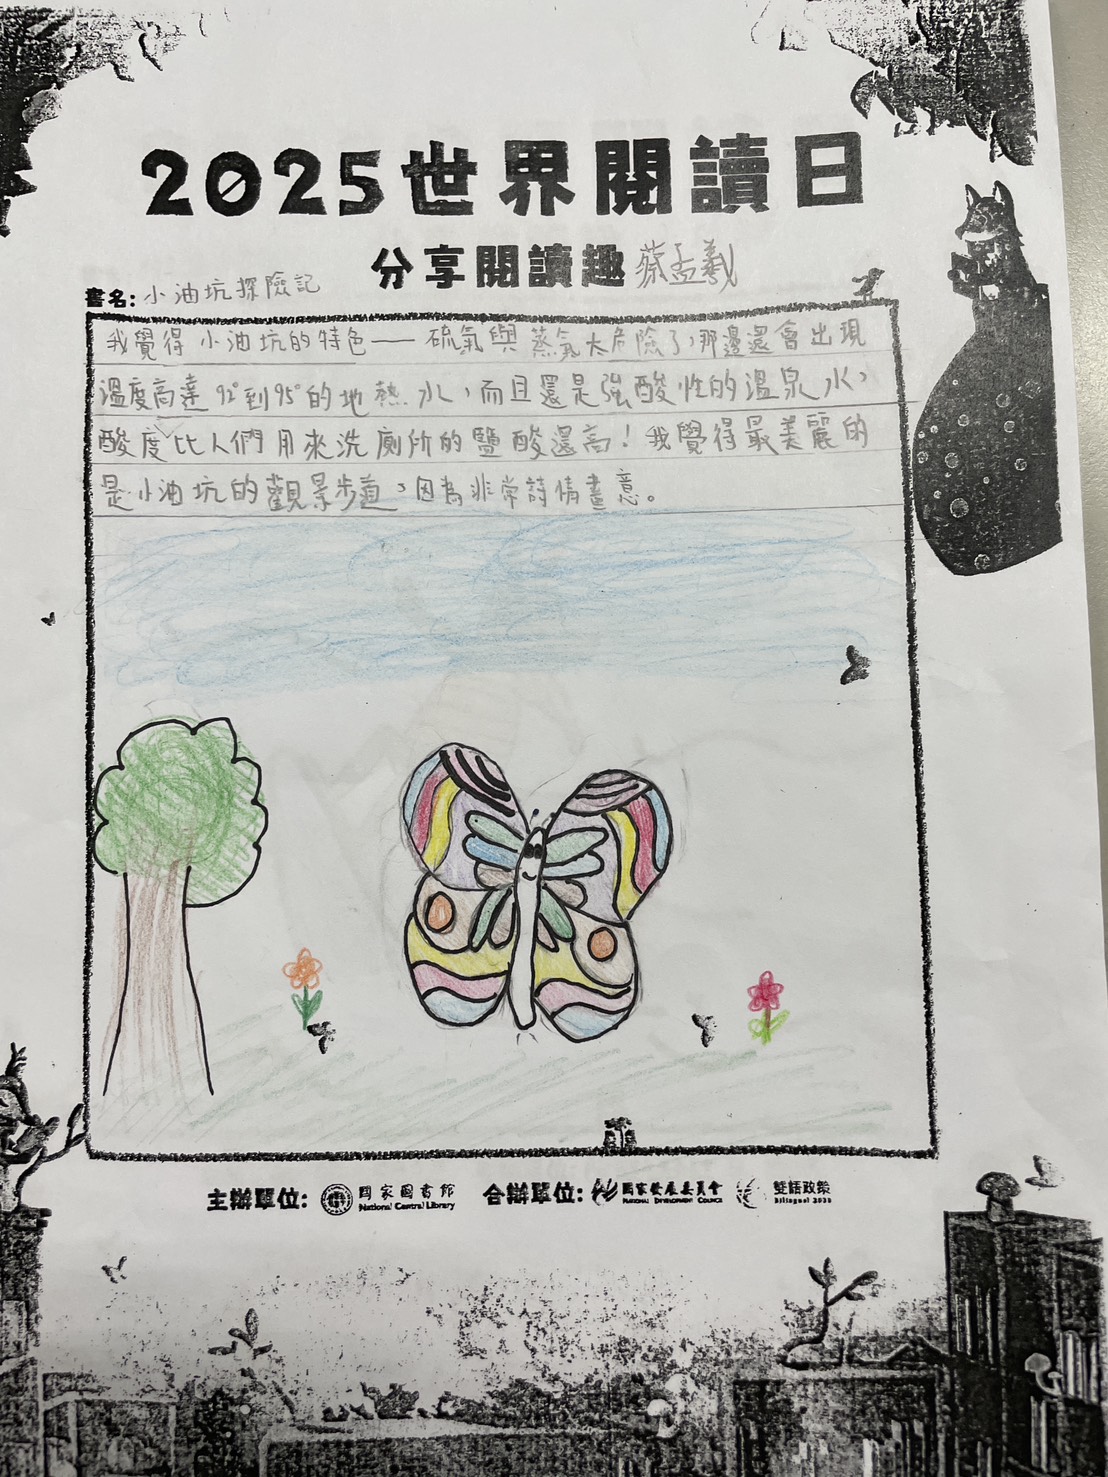 2025世界閱讀日
分享閱讀趣 蔡孟羲
書名：小油坑探險記
我覺得小油坑的特色——硫氣與蒸氣太危險了，那邊還會出現
溫度高達92°到95°的地熱水，而且還是強酸性的溫泉水，
酸度比人們用來洗廁所的鹽酸還高！我覺得最美麗的
是小油坑的觀景步道，因為非常詩情畫意。
主辦單位： 國家圖書館 National Central Library 合辦單位： 國家發展委員會 National Development Council 雙語政策 Bilingual 2030